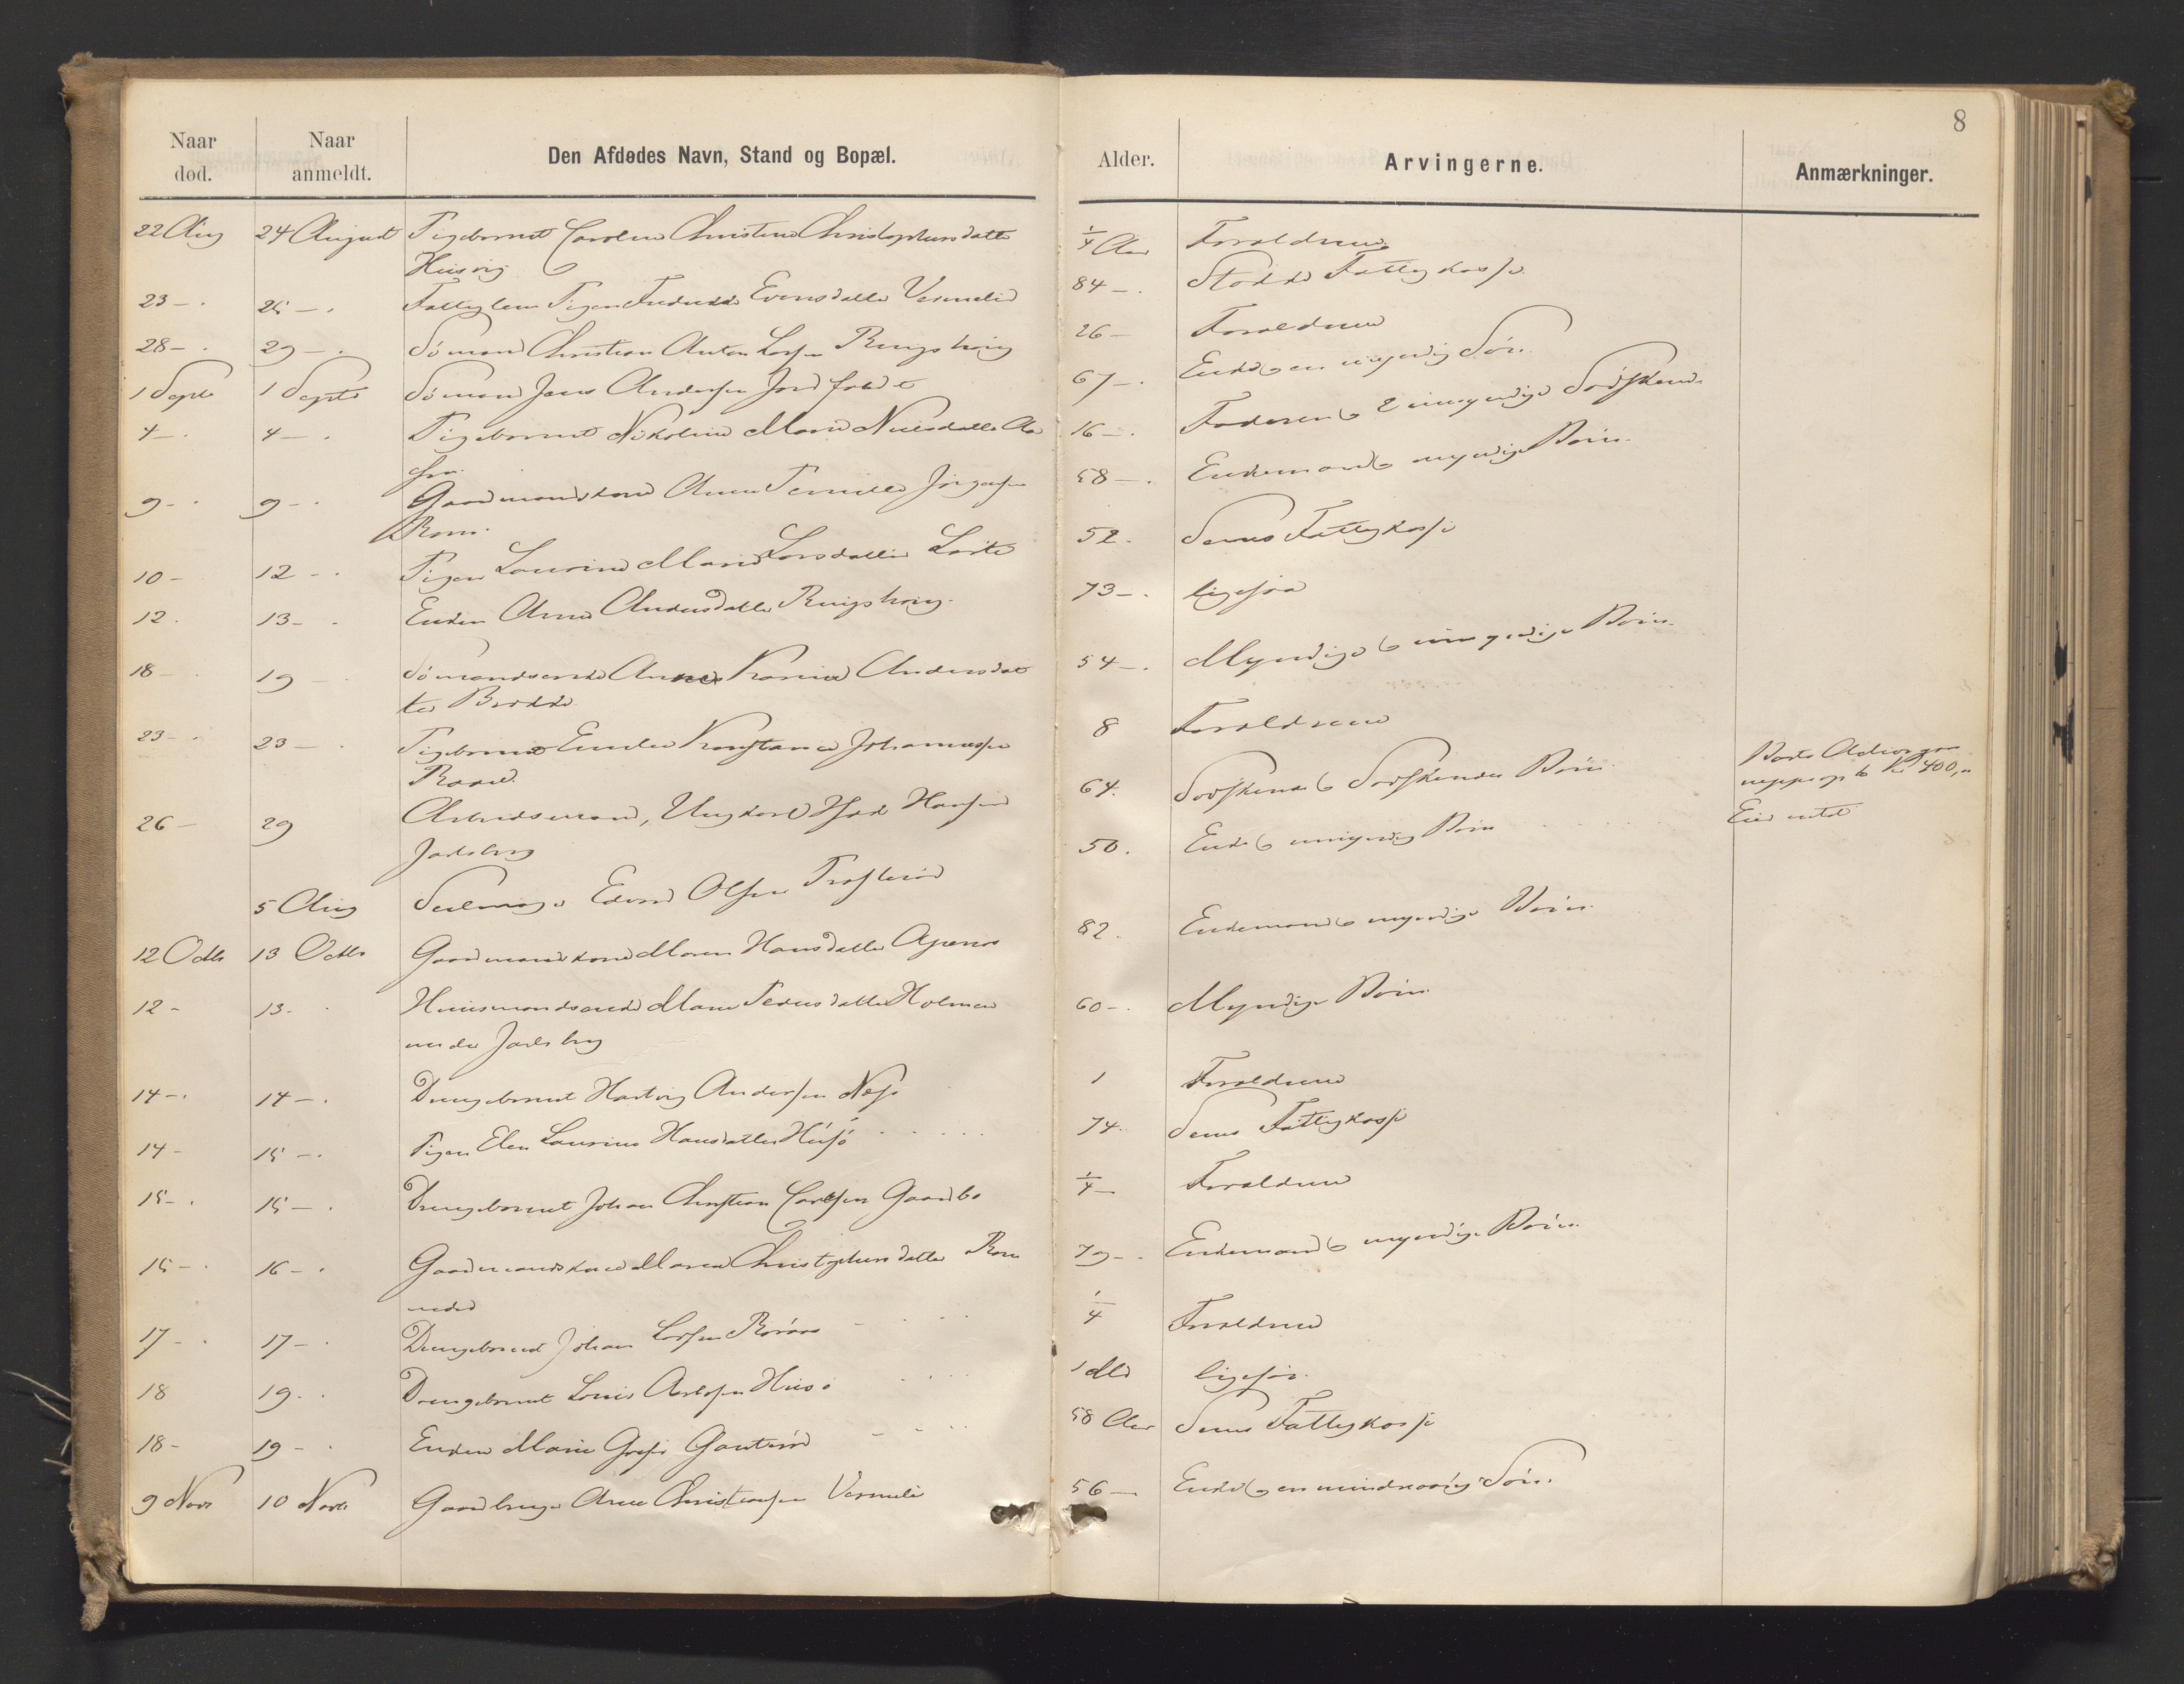 8
Naar død. Naar anmeldt. Den Afdødes Navn, Stand og Bopæl. Alder. Arvingerne. Anmærkninger.
22 Aug 24 August Pigebarnet Caroline Christine Christophersdatter 1/4 Aar Forældrene
Husvig
23 - 25 - Fattiglem Pigen Evensdatter Vermelid 84 - Stokke Fattigkasse
28 - 29 - Sømand Christian Anton Larsen Ringshoug 26 - Forældrene
1 Septb 1 Septb Sømand Jens Andersen 67 - Enke & en myndig Søn
4 - 4 - Pigebarnet Nikoline Marie Nilsdatter 16 - Faderen & 2 umyndige Sødskende
9 - 9 - Gaardmandskone Anne Pernille Jørgensen 58 - Enkemand & myndige Børn
10 - 12 - Pigen Laurine Marie Larsdatter 52 - Sems Fattigkasse
12 - 13 - Enken Anne Andersdatter Ringshoug 73 - ligesaa
18 - 19 - Sømandsenke Anne Karine Andersdat 54 - Myndige & umyndige Børn
ter Brekke
23 - 23 - Pigebarnet Emilie Konstance Johannessen 8 Forældrene
26 - 29 Arbeidsmand, Ungkarl Hansen 64 Sødskende & Sødskendes Børn Boets Activa gaar
Jarlsberg neppe op to Kr 400,"
5 Aug Selveier Edvard Olsen 50 Enke & umyndig Børn Eier intet
12 Octb 13 Octb Gaardmandskone Maren Hansdatter Agenes 82 Enkemand & myndige Børn
12 - 13 - Husmandsenke Maren Pedersdatter Holmen 60 - Myndige Børn
under Jarlsberg
14 - 14 - Drengebarnet Hartvig Andersen Nes 1 Forældrene
14 - 15 - Pigen Elen Laurine Hansdatter Husø 74 Sems Fattigkasse
15 - 15 - Drengebarnet Johan Christian Carlsen Gaardbo 1/4 - Forældrene
15 - 16 - Gaardmandskone Maren Christophersdatter 79 - Enkemand & myndige Børn
17 - 17 - Drengebarnet Johan Larsen Roraas 1/4 Forældrene
18 19 - Drengebarnet Louis Husø 1 Md ligesaa
18 - 19 - Enken Marie Gauterød 58 Aar Sems Fattigkasse
9 Novb 10 Novb Gaardbruger Arne Christiansen Vermelid 56 - Enke & en mindreaarig Søn